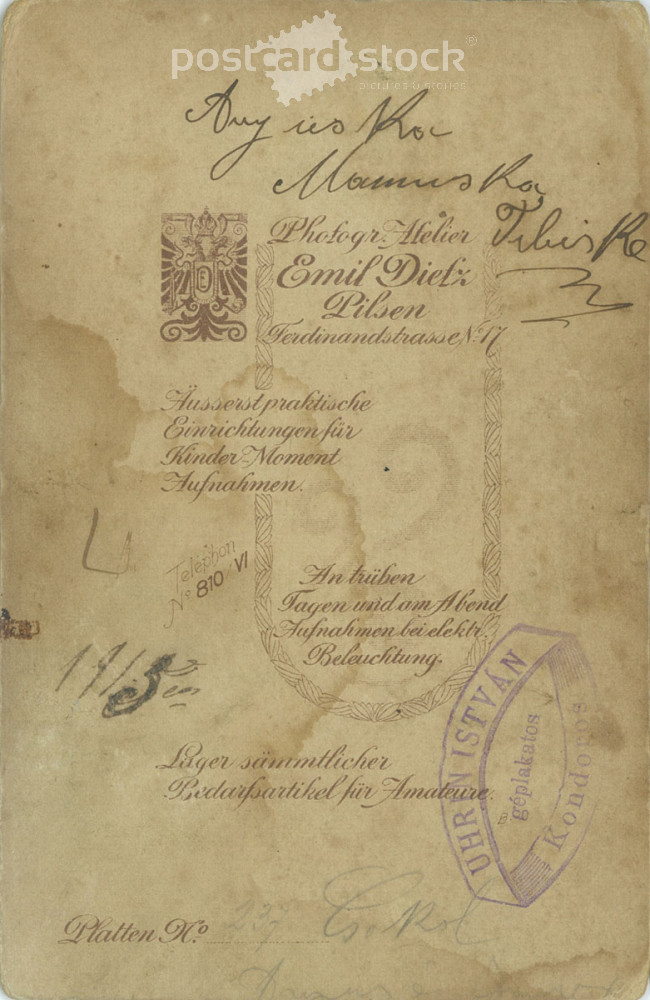 postcardstock®
pictures & stories
Anyuska
Mamuska
Tibiske
Photogr. Atelier
Emil Dietz
Pilsen
Ferdinandstrasse No. 17
D
Äusserst praktische
Einrichtungen für
Kinder-Moment
Aufnahmen.
Telephon
No 810/VI
An trüben
Tagen und am Abend
Aufnahmen bei elektr.
Beleuchtung.
Lager sämmtlicher
Bedarfsartikel für Amateure.
UHRIN ISTVÁN
géplakatos
Kondoros
Platten No. 237